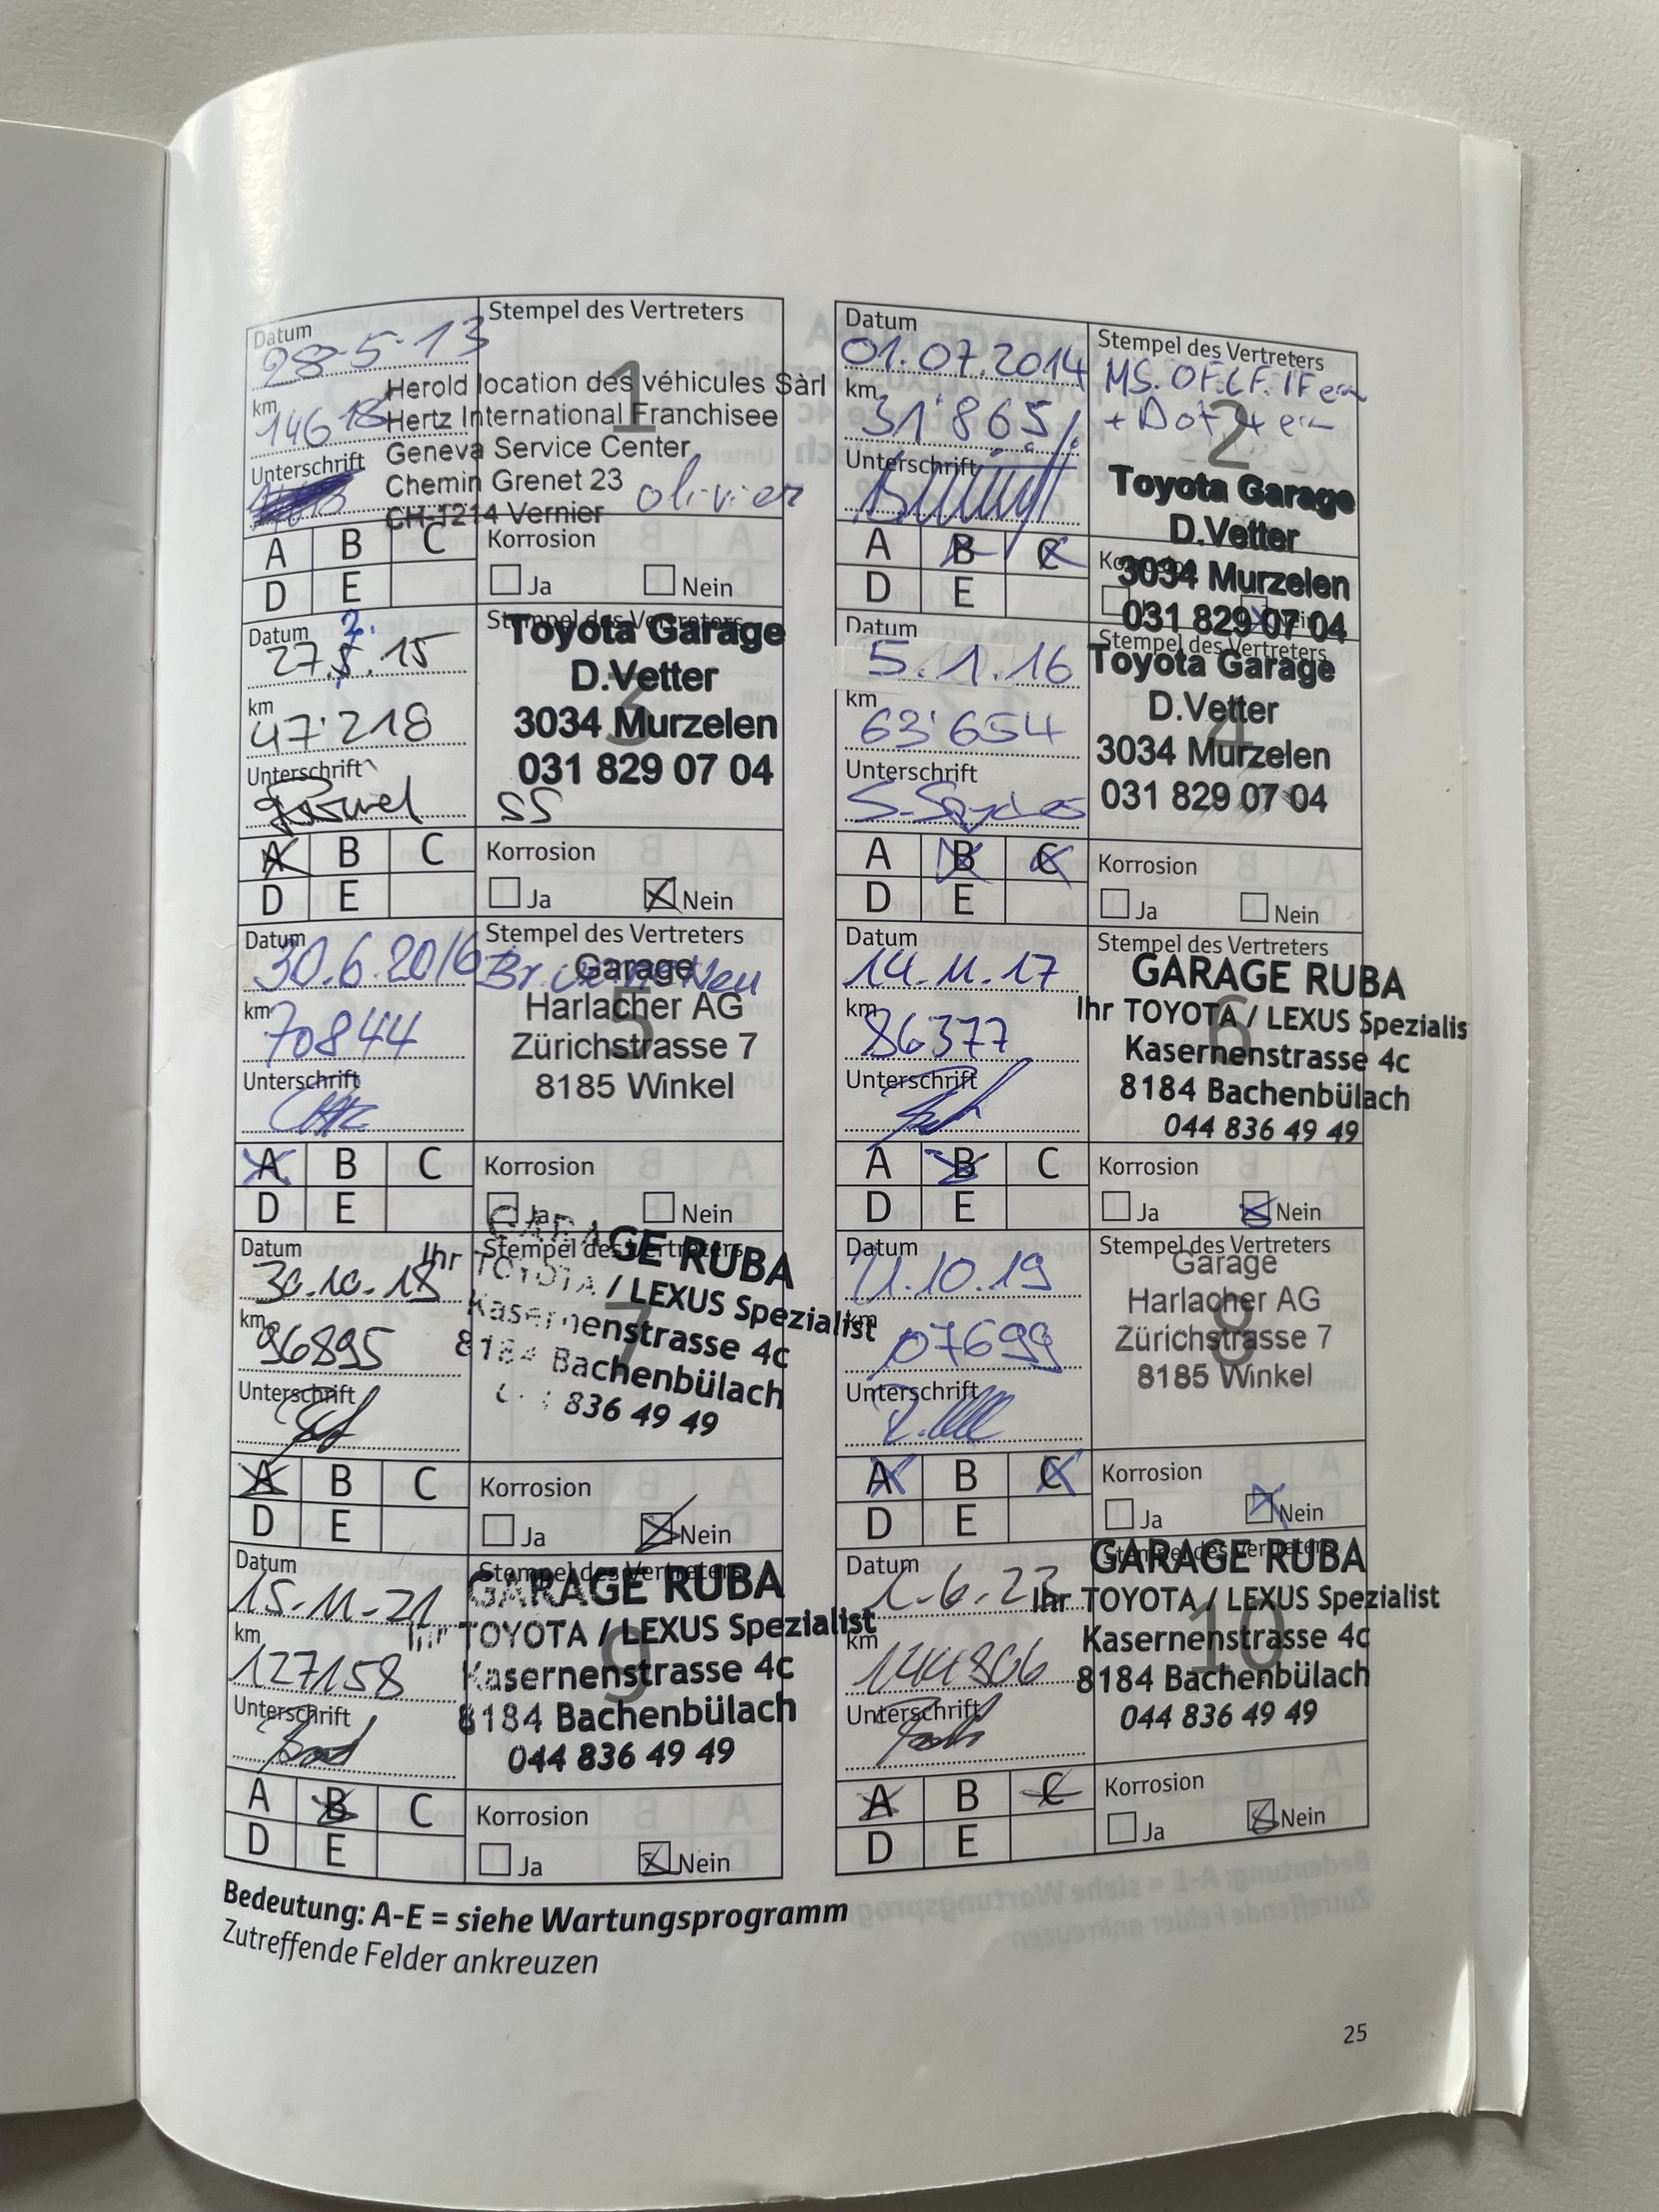 Datum
28-5-13
km
14618
Unterschrift
Stempel des Vertreters
1
Herold location des véhicules Sàrl
Hertz International Franchisee
Geneva Service Center
Chemin Grenet 23
CH-1214 Vernier
olivier
A B C
D E
Korrosion
Ja Nein
Datum
01.07.2014
km
31'865
Unterschrift
Stempel des Vertreters
2
MS. OF. LF. IF
+ Dot 4
Toyota Garage
D.Vetter
3034 Murzelen
031 829 07 04
A B C
D E
Datum
27. 5. 15
7.
km
47'218
Unterschrift
Stempel des Vertreters
3
Toyota Garage
D.Vetter
3034 Murzelen
031 829 07 04
SS
A B C
D E
Korrosion
Ja Nein
Datum
5.1.16
km
63'654
Unterschrift
Stempel des Vertreters
4
Toyota Garage
D.Vetter
3034 Murzelen
031 829 07 04
A B C
D E
Korrosion
Ja Nein
Datum
30.6.2016
km
70844
Unterschrift
Stempel des Vertreters
5
Garage
Harlacher AG
Zürichstrasse 7
8185 Winkel
A B C
D E
Korrosion
Ja Nein
Datum
14.11.17
km
86377
Unterschrift
Stempel des Vertreters
6
GARAGE RUBA
Ihr TOYOTA / LEXUS Spezialis
Kasernenstrasse 4c
8184 Bachenbülach
044 836 49 49
A B C
D E
Korrosion
Ja Nein
Datum
30.10.18
km
96895
Unterschrift
Stempel des Vertreters
7
GARAGE RUBA
Ihr TOYOTA / LEXUS Spezialist
Kasernenstrasse 4c
8184 Bachenbülach
836 49 49
A B C
D E
Korrosion
Ja Nein
Datum
21.10.19
km
107699
Unterschrift
Stempel des Vertreters
8
Garage
Harlacher AG
Zürichstrasse 7
8185 Winkel
A B C
D E
Korrosion
Ja Nein
Datum
15-11-21
km
127158
Unterschrift
Stempel des Vertreters
9
GARAGE RUBA
Ihr TOYOTA / LEXUS Spezialist
Kasernenstrasse 4c
8184 Bachenbülach
044 836 49 49
A B C
D E
Korrosion
Ja Nein
Datum
km
144806
Unterschrift
Stempel des Vertreters
10
GARAGE RUBA
Ihr TOYOTA / LEXUS Spezialist
Kasernenstrasse 4c
8184 Bachenbülach
044 836 49 49
A B C
D E
Korrosion
Ja Nein
Bedeutung: A-E = siehe Wartungsprogramm
Zutreffende Felder ankreuzen
25